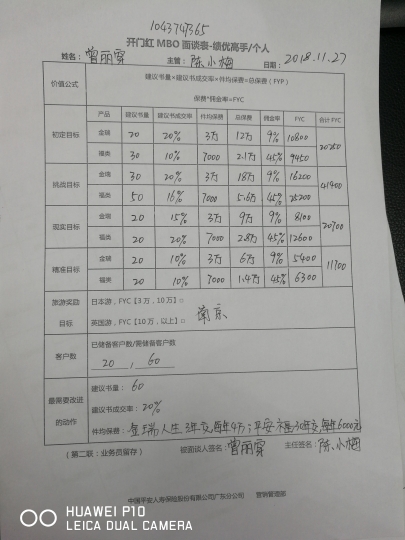 1043747365
开门红 MBO 面谈表-绩优高手/个人
姓名：曾丽霏 主管：陈小梅 日期：2018.11.27
价值公式 建议书量×建议书成交率×件均保费=总保费（FYP）
保费*佣金率=FYC
产品 建议书量 建议书成交率 件均保费 总保费 佣金率 FYC 合计 FYC
初定目标 金瑞 20 20% 3万 12万 9% 10800 20250
福类 30 10% 7000 2.1万 45% 9450
挑战目标 金瑞 30 20% 3万 18万 9% 16200 41400
福类 50 16% 7000 5.6万 45% 25200
现实目标 金瑞 20 15% 3万 9万 9% 8100 20700
福类 20 20% 7000 2.8万 45% 12600
精准目标 金瑞 20 10% 3万 6万 9% 5400 11700
福类 20 10% 7000 1.4万 45% 6300
旅游奖励目标 日本游，FYC【3万，10万】□
英国游，FYC【10万，以上】□ 南京
客户数 已储备客户数/需储备客户数
20 , 60
最需要改进的动作 建议书量：60
建议书成交率：20%
件均保费：金瑞人生3年交每年4万；平安福30年交，每年6000元
（第二联：业务员留存） 被面谈人签名：曾丽霏 主任签名：陈小梅
中国平安人寿保险股份有限公司广东分公司 营销管理部
HUAWEI P10
LEICA DUAL CAMERA